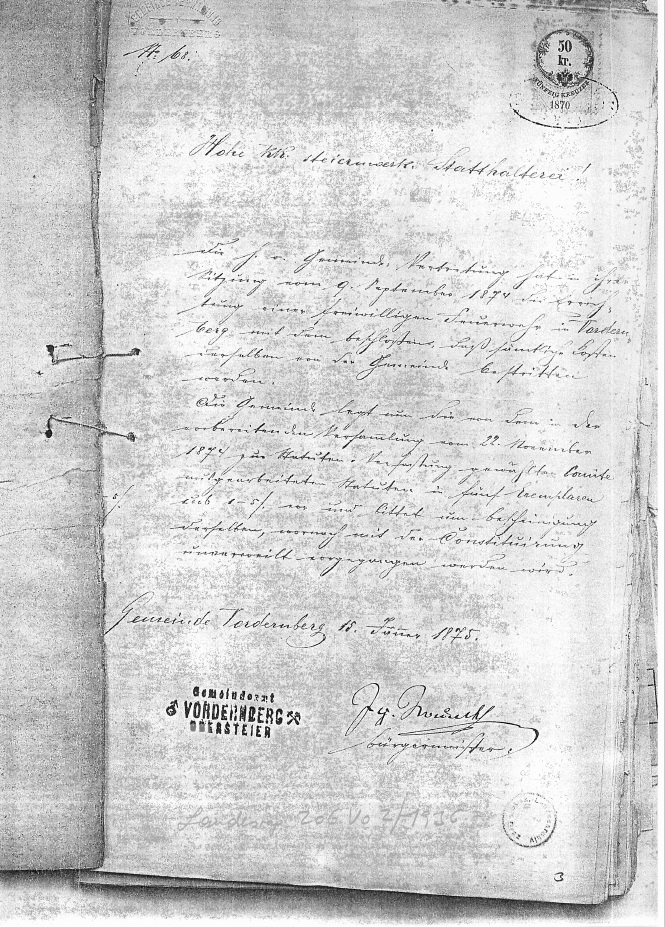 N: 68.
50
kr.
FÜNFZIG KREUZER
1870
Hohe kk. steiermerk. Statthalterei!
Die h. o. Gemeinde Vertretung hat in ihrer
Sitzung vom 9. September 1874 die Errich-
tung einer freiwilligen Feuerwehr in Vordern-
berg mit dem beschlossen, daß sämtliche Kosten
derselben von der Gemeinde bestritten
werden.
Die Gemeinde legt nun die von dem in der
vorbereitenden Versamlung vom 22. November
1874 zur Statuten-Verfassung gewählten Comite
ausgearbeiteten Statuten in fünf Exemplaren
sub 1-5/. vor und bittet um Bescheinigung
derselben, wornach mit der Constituirung
unverweilt vorgegangen werden wird.
Gemeinde Vordernberg 15. Jäner 1875.
Gemeindeamt
VORDERNBERG
OBERSTEIER
Bürgermeister.
206 Vo 2/1936
3